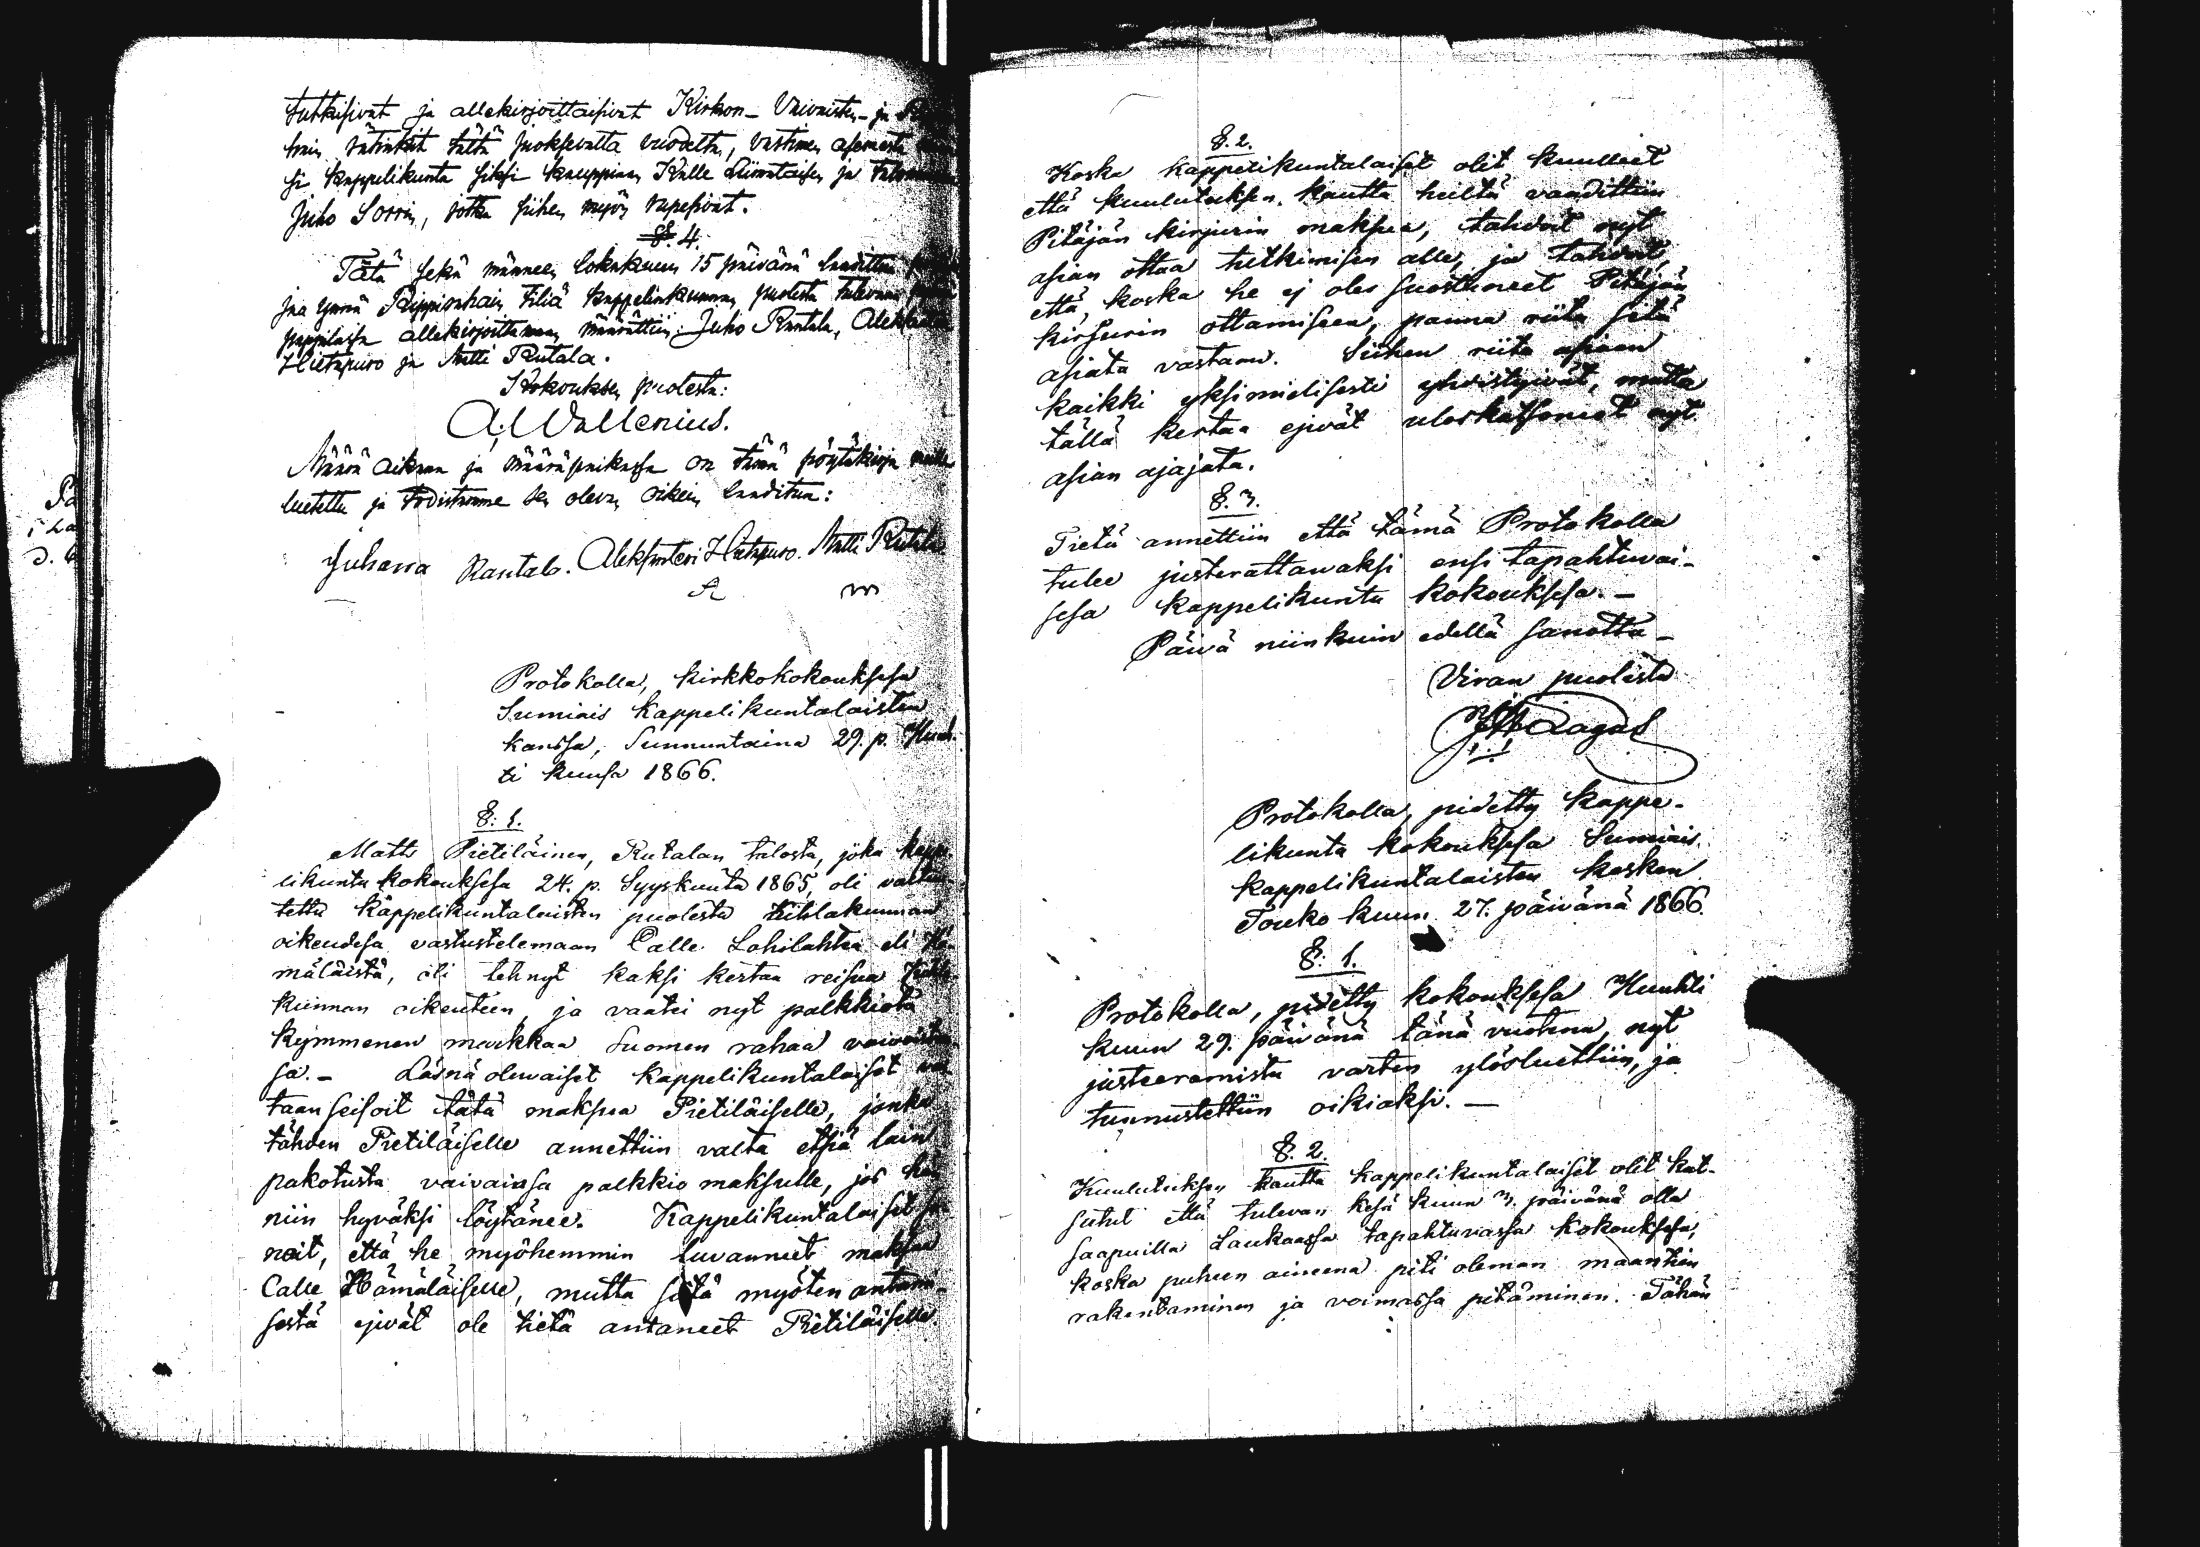 tutkisivat ja allekirjoittaisivat Kirkon- Vaivaistu- ja
hais tätinkit tältä juoksevalta vuodelta, vastimen asemesta
si kappelikunta siksi kauppias Kalle Liimataisen ja
Juho Sorrin, jotka siihen myös rupesivat.
§. 4.
Tätä sekä männeen lokakuun 15 päivänä laadittua
jaa ynnä Pappionhain tiliä kappelinkunnan puolesta tulevana
pappilassa allekirjoittamaan määrättiin: Juho Rautala,
Hietapuro ja Matti Rutala.
Kokouksen puolesta:
A. Wallenius.
Määrä aikana ja määräpaikassa on tämä pöytäkirja meille
luetettu ja todistamme sen olevan oikein laaditun:
Juhana Rautala. Aleksanteri Hietapuro. Matti Rutala
Protokolla, kirkkokokouksesa
Sumiais kappelikuntalaisten
kanssa, Sunnuntaina 29. p. Huh-
ti kuusa 1866.
§. 1.
Matts Pietiläinen, Rutalan talosta, joka kappe-
likunta kokouksesa 24. p. Syyskuuta 1865, oli
tettu kappelikuntalaisten puolesta kihlakunnan
oikeudesa vastustelemaan Calle Lohilahtea eli Hä-
mäläistä, oli tehnyt kaksi kertaa reisua kihla-
kunnan oikeuteen, ja vaatei nyt palkkiota
kymmenen markkaa Suomen rahaa
sa. - Läsnä olewaiset kappelikuntalaiset vas-
taan seisoit tätä maksua Pietiläiselle, jonka
tähden Pietiläiselle annettiin valta etsiä lain
pakotusta vaivainsa palkkio maksulle, jos hän
niin hyväksi löytänee. Kappelikuntalaiset sa-
noit, että he myöhemmin luvanneet maksaa
Calle Hämäläiselle, mutta sitä myöten antami-
sestä ejwät ole tietä antaneet Pietiläiselle.
§. 2.
Koska kappelikuntalaiset olit kuulleet
että kuulutuksen kautta heiltä vaadittiin
Pitäjän kirjurin maksua, tahdoit nyt
asian ottaa tutkimisen alle, ja tahdoit,
että, koska he ej oles suostuneet Pitäjän
kirjurin ottamiseen, panna riita sitä
asiata vastaan. Siihen riita asiaan
kaikki yksimielisesti yhdistyivät, mutta
tällä kertaa ejwät uloskatsoneet nyt
asian ajajata.
§. 3.
Tietä annettiin että tämä Protokolla
tulee justerattawaksi ensi tapahtuwai-
sesa kappelikunta kokouksesa. -
Päivä niinkuin edellä sanottu -
Viran puolesta
Protokolla, pidetty kappe-
likunta kokouksesa Sumiais
kappelikuntalaisten kesken
Touko kuun 27. päivänä 1866.
§. 1.
Protokolla, pidetty kokouksesa Huhti
kuun 29. päivänä tänä vuotena, nyt
justeeramista varten ylösluettiin, ja
tunnustettiin oikiaksi. -
§. 2.
Kuulutuksen kautta kappelikuntalaiset olit kut-
sutut että tulevan kesä kuun 3. päivänä olla
saapuilla Laukaassa tapahtuvassa kokouksesa,
koska puheen aineena piti oleman maantien
rakentaminen ja voimassa pitäminen. Tähän